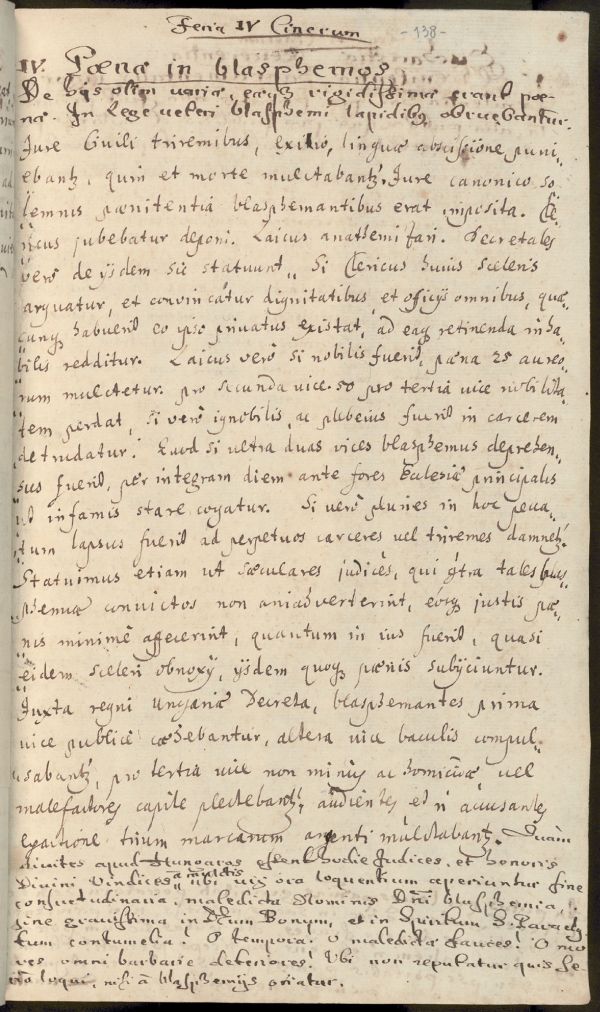 Feria IV Cinerum
-138-
IV. Pœnæ in blasphemos
De hijs olim variæ, eæq; rigidissimæ erant pœ-
næ. In Lege veteri blasphemi lapidibq obruebantur.
Jure Civili triremibus, exilio, linguæ abscissione puni„
ebantq, quin et morte mulctabantq. Jure canonico so-
lemnis pœnitentia blasphemantibus erat imposita. Cle„
ricus jubebatur deponi. Laicus anathemizari. Decretales
verò de ijsdem sic statuunt„ Si Clericus huius sceleris
arguatur, et convincatur dignitatibus, et officijs omnibus, quæ„
cunq; habuerit eo ipso privatus existat, ad eaq retinenda inha„
bilis redditur. Laicus verò si nobilis fuerit, pœna 25 aureo„
rum mulctetur. pro secunda vice. 50 pro tertia vice nobilita„
tem perdat, si verò ignobilis, ac plebeius fuerit in carcerem
detrudatur. Quod si ultra duas vices blasphemus deprehen„
sus fuerit, per integram diem ante fores Ecclesiæ principalis
ut infamis stare cogatur. Si verò pluries in hoc pecca„
tum lapsus fuerit ad perpetuos carceres vel triremes damnetq.
Statuimus etiam ut sæculares judices, qui contra tales blas„
phemiæ convictos non aniadverterint, eosq; justis pœ„
nis minimè affecerint, quantum in ius fuerit, quasi
eidem sceleri obnoxij, ijsdem quoq; pœnis subijciuntur.
Juxta regni Ungariæ Decreta, blasphemantes prima
vice publicè cædebantur, altera vice baculis compul„
sabantq, pro tertia vice non minus ac homicidæ vel
malefactores capite plectebantq, audientes et n accusantes
exactione trium marcarum argenti mulctabantq. Quam
divites apud Hungaros essent hodie Judices, et honoris
Divini vindices„ ubi vix ora loquentium aperiuntur sine
consuetudinaria, maledicta Nominis Dñi blasphemia,
sine gravissima in Deum Bonum, et in Spiritum S. Paracly
tum contumelia! O tempora. O maledictæ fauces! O mo
res omni barbarie deteriores! Ubi non reputatur quis se-
riò loqui, nisi à blasphemijs oriatur.